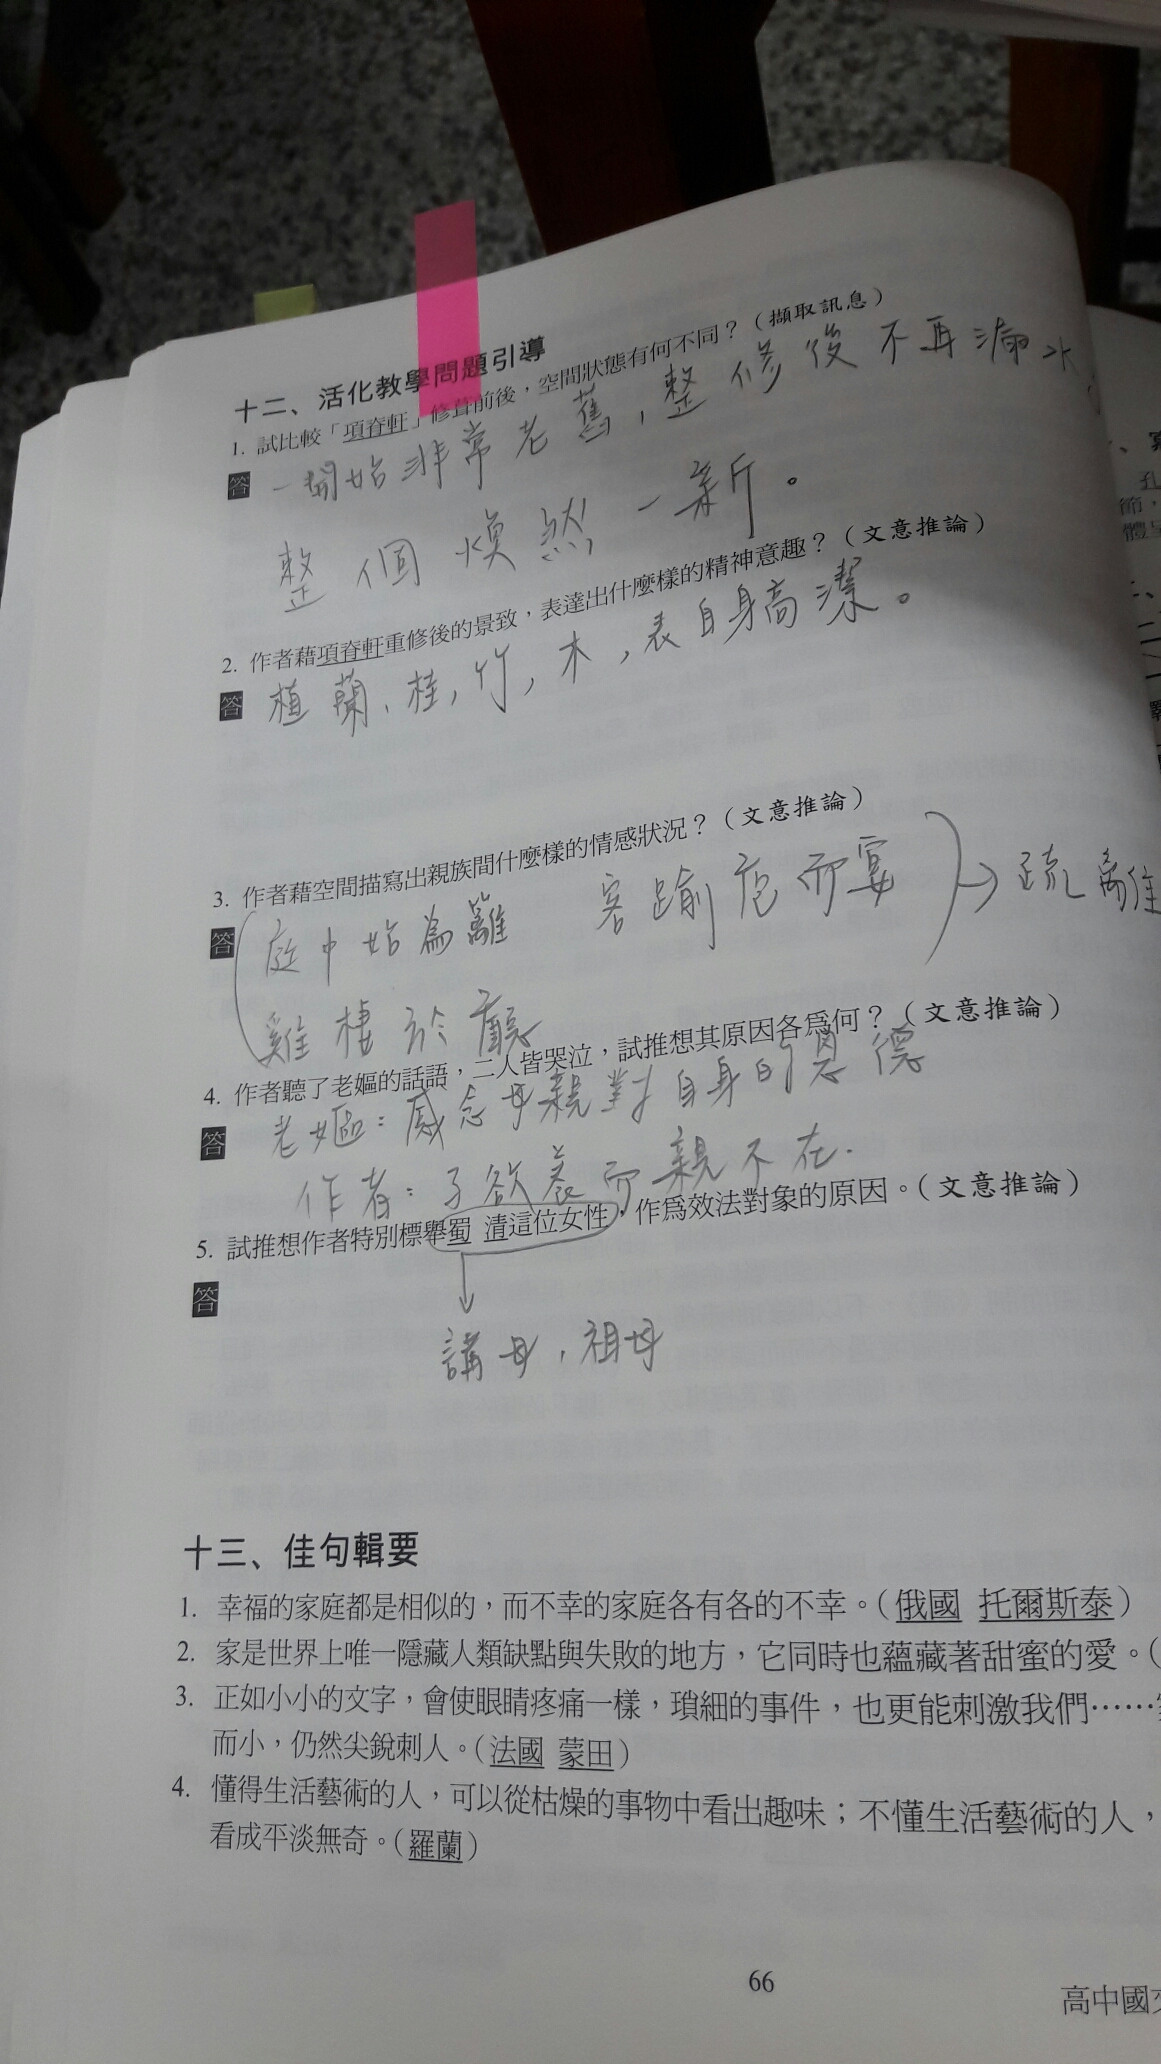 十二、活化教學問題引導
1. 試比較「項脊軒」修葺前後，空間狀態有何不同？（擷取訊息）
答 一開始非常老舊，整修後不再漏水，
整個煥然一新。
2. 作者藉項脊軒重修後的景致，表達出什麼樣的精神意趣？（文意推論）
答 植蘭，桂，竹，木，表自身高潔。
3. 作者藉空間描寫出親族間什麼樣的情感狀況？（文意推論）
答 (庭中始為籬 客踰庖而宴)→疏離
雞棲於廳
4. 作者聽了老嫗的話語，二人皆哭泣，試推想其原因各爲何？（文意推論）
答 老嫗：感念母親對自身的恩德
作者：子欲養而親不在.
5. 試推想作者特別標舉蜀 清這位女性，作爲效法對象的原因。（文意推論）
答
講母，祖母
十三、佳句輯要
1. 幸福的家庭都是相似的，而不幸的家庭各有各的不幸。（俄國 托爾斯泰）
2. 家是世界上唯一隱藏人類缺點與失敗的地方，它同時也蘊藏著甜蜜的愛。（
3. 正如小小的文字，會使眼睛疼痛一樣，瑣細的事件，也更能刺激我們……
而小，仍然尖銳刺人。（法國 蒙田）
4. 懂得生活藝術的人，可以從枯燥的事物中看出趣味；不懂生活藝術的人，
看成平淡無奇。（羅蘭）
66
高中國文